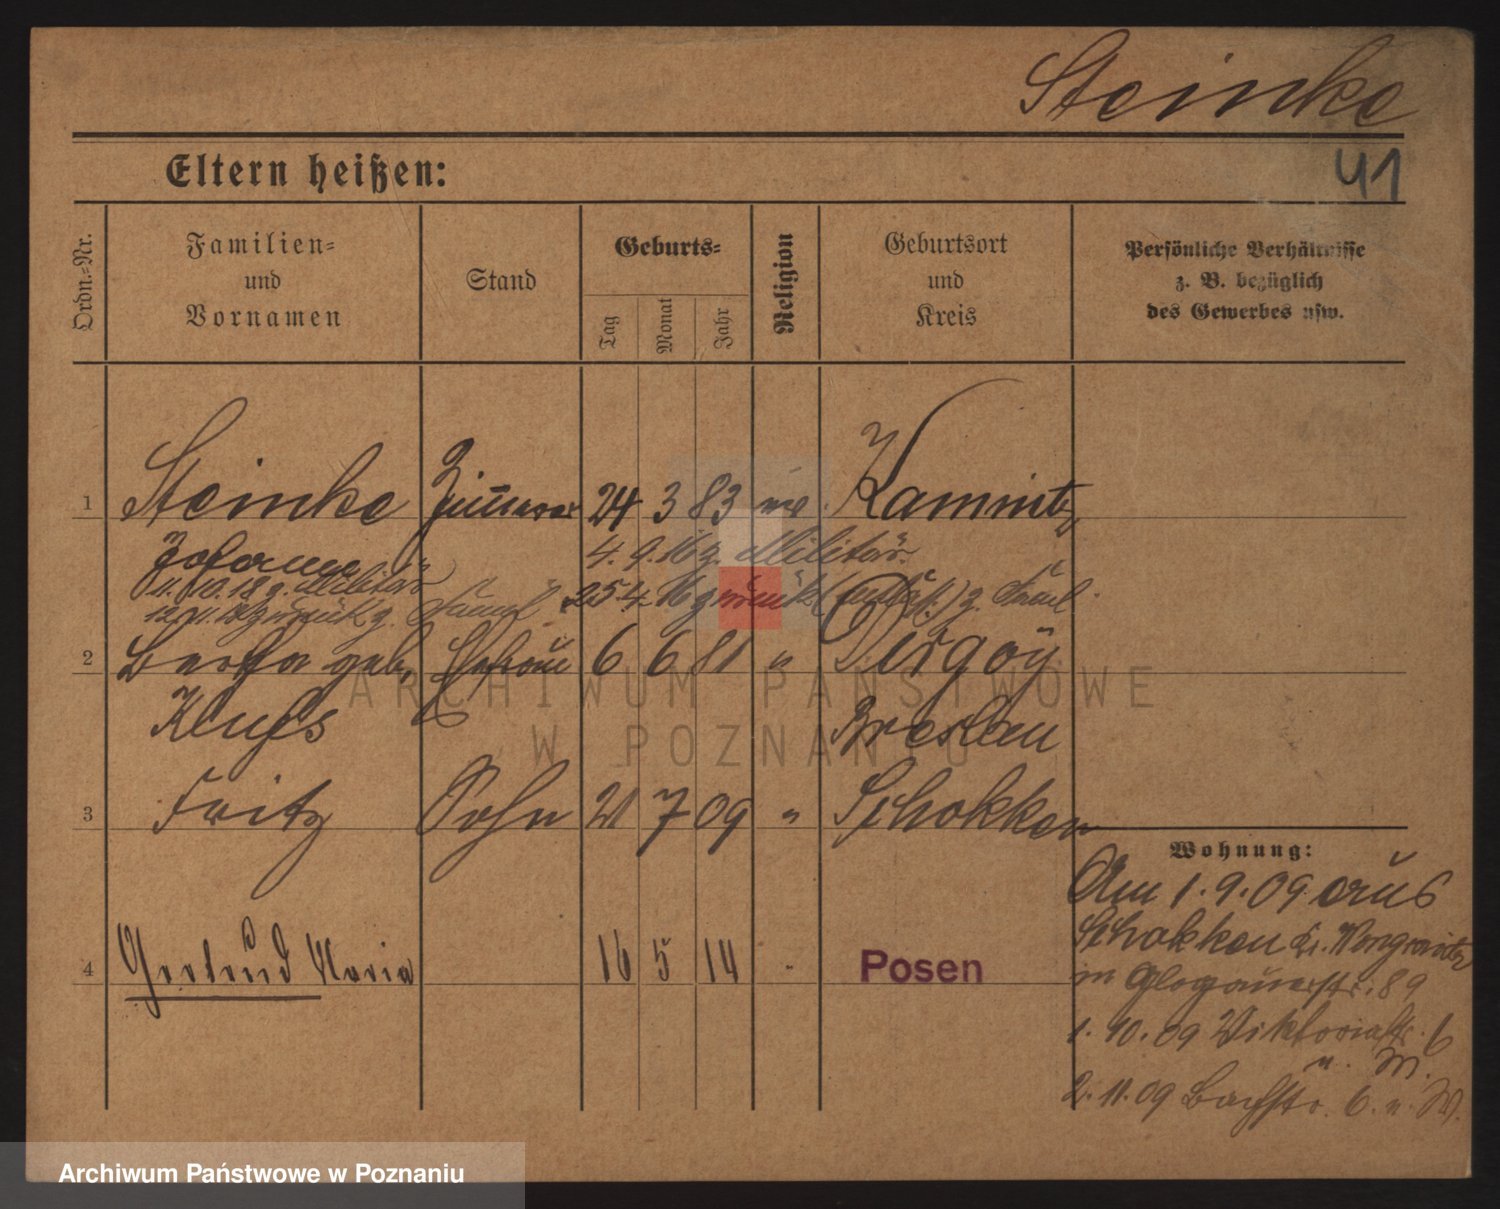 Steinke
41
Eltern heißen:
Ordn.-Nr.
Familien-
und
Vornamen
Stand
Geburts-
Tag
Monat
Jahr
Religion
Geburtsort
und
Kreis
Persönliche Verhältnisse
z. B. bezüglich
des Gewerbes usw.
1 Steinke Zimmerer 24 3 83
Johann 4. 9. 16 z. Militär
11. 10. 18 z. Militär 25. 4. 16 zurück
12. 11. 18 zurück z.
2 Berta geb. Ehefrau 6 6 81 "
Breslau
3 Fritz Sohn 21 7 09 " Schokken
Wohnung:
Am 1. 9. 09 aus
Schokken Kr. Wongrowitz
4 Gertrud Maria 16 5 14 " Posen
in Glogauerstr. 89
1. 10. 09 Viktoriastr. 6
u. M.
2. 11. 09 Bachstr. 6. u. M.
ARCHIWUM PAŃSTWOWE
W POZNANIU
Archiwum Państwowe w Poznaniu